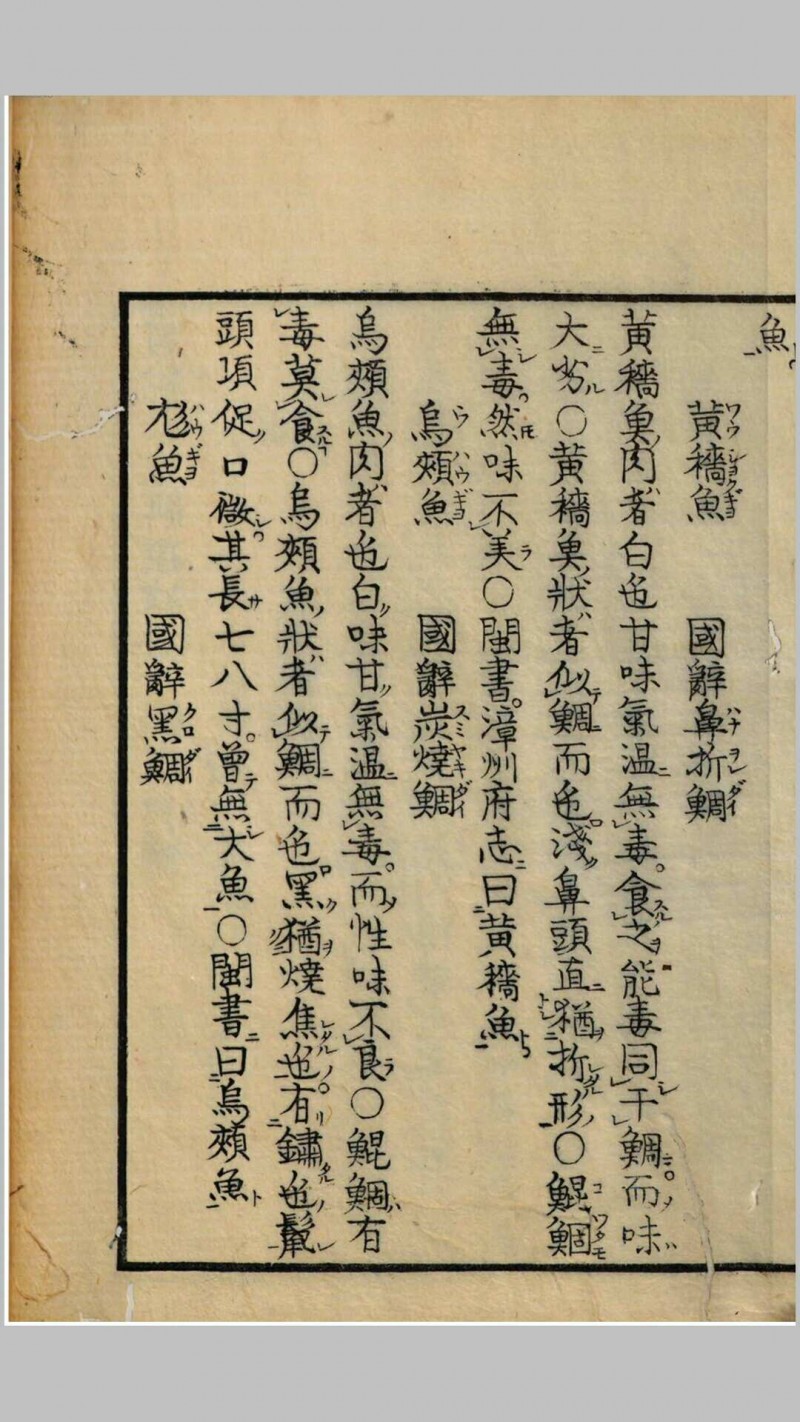 魚
黃穡魚　國辭鼻折鯛
黃穡魚肉者白色甘味氣温無毒食之能毒同于鯛而味
大劣〇黃穡魚狀者似鯛而色淺鼻頭直猶折形〇鯤鯝
無毒然味不美〇閩書漳州府志曰黃穡魚
烏頰魚　國辭炭燒鯛
烏頰魚肉者色白味甘氣温無毒而性味不良〇鯤鯝有
毒莫食〇烏頰魚狀者似鯛而色黑猶燒焦色有鏽色鬣
頭項促口微其長七八寸曾無大魚〇閩書曰烏頰魚
魚　國辭黑鯛